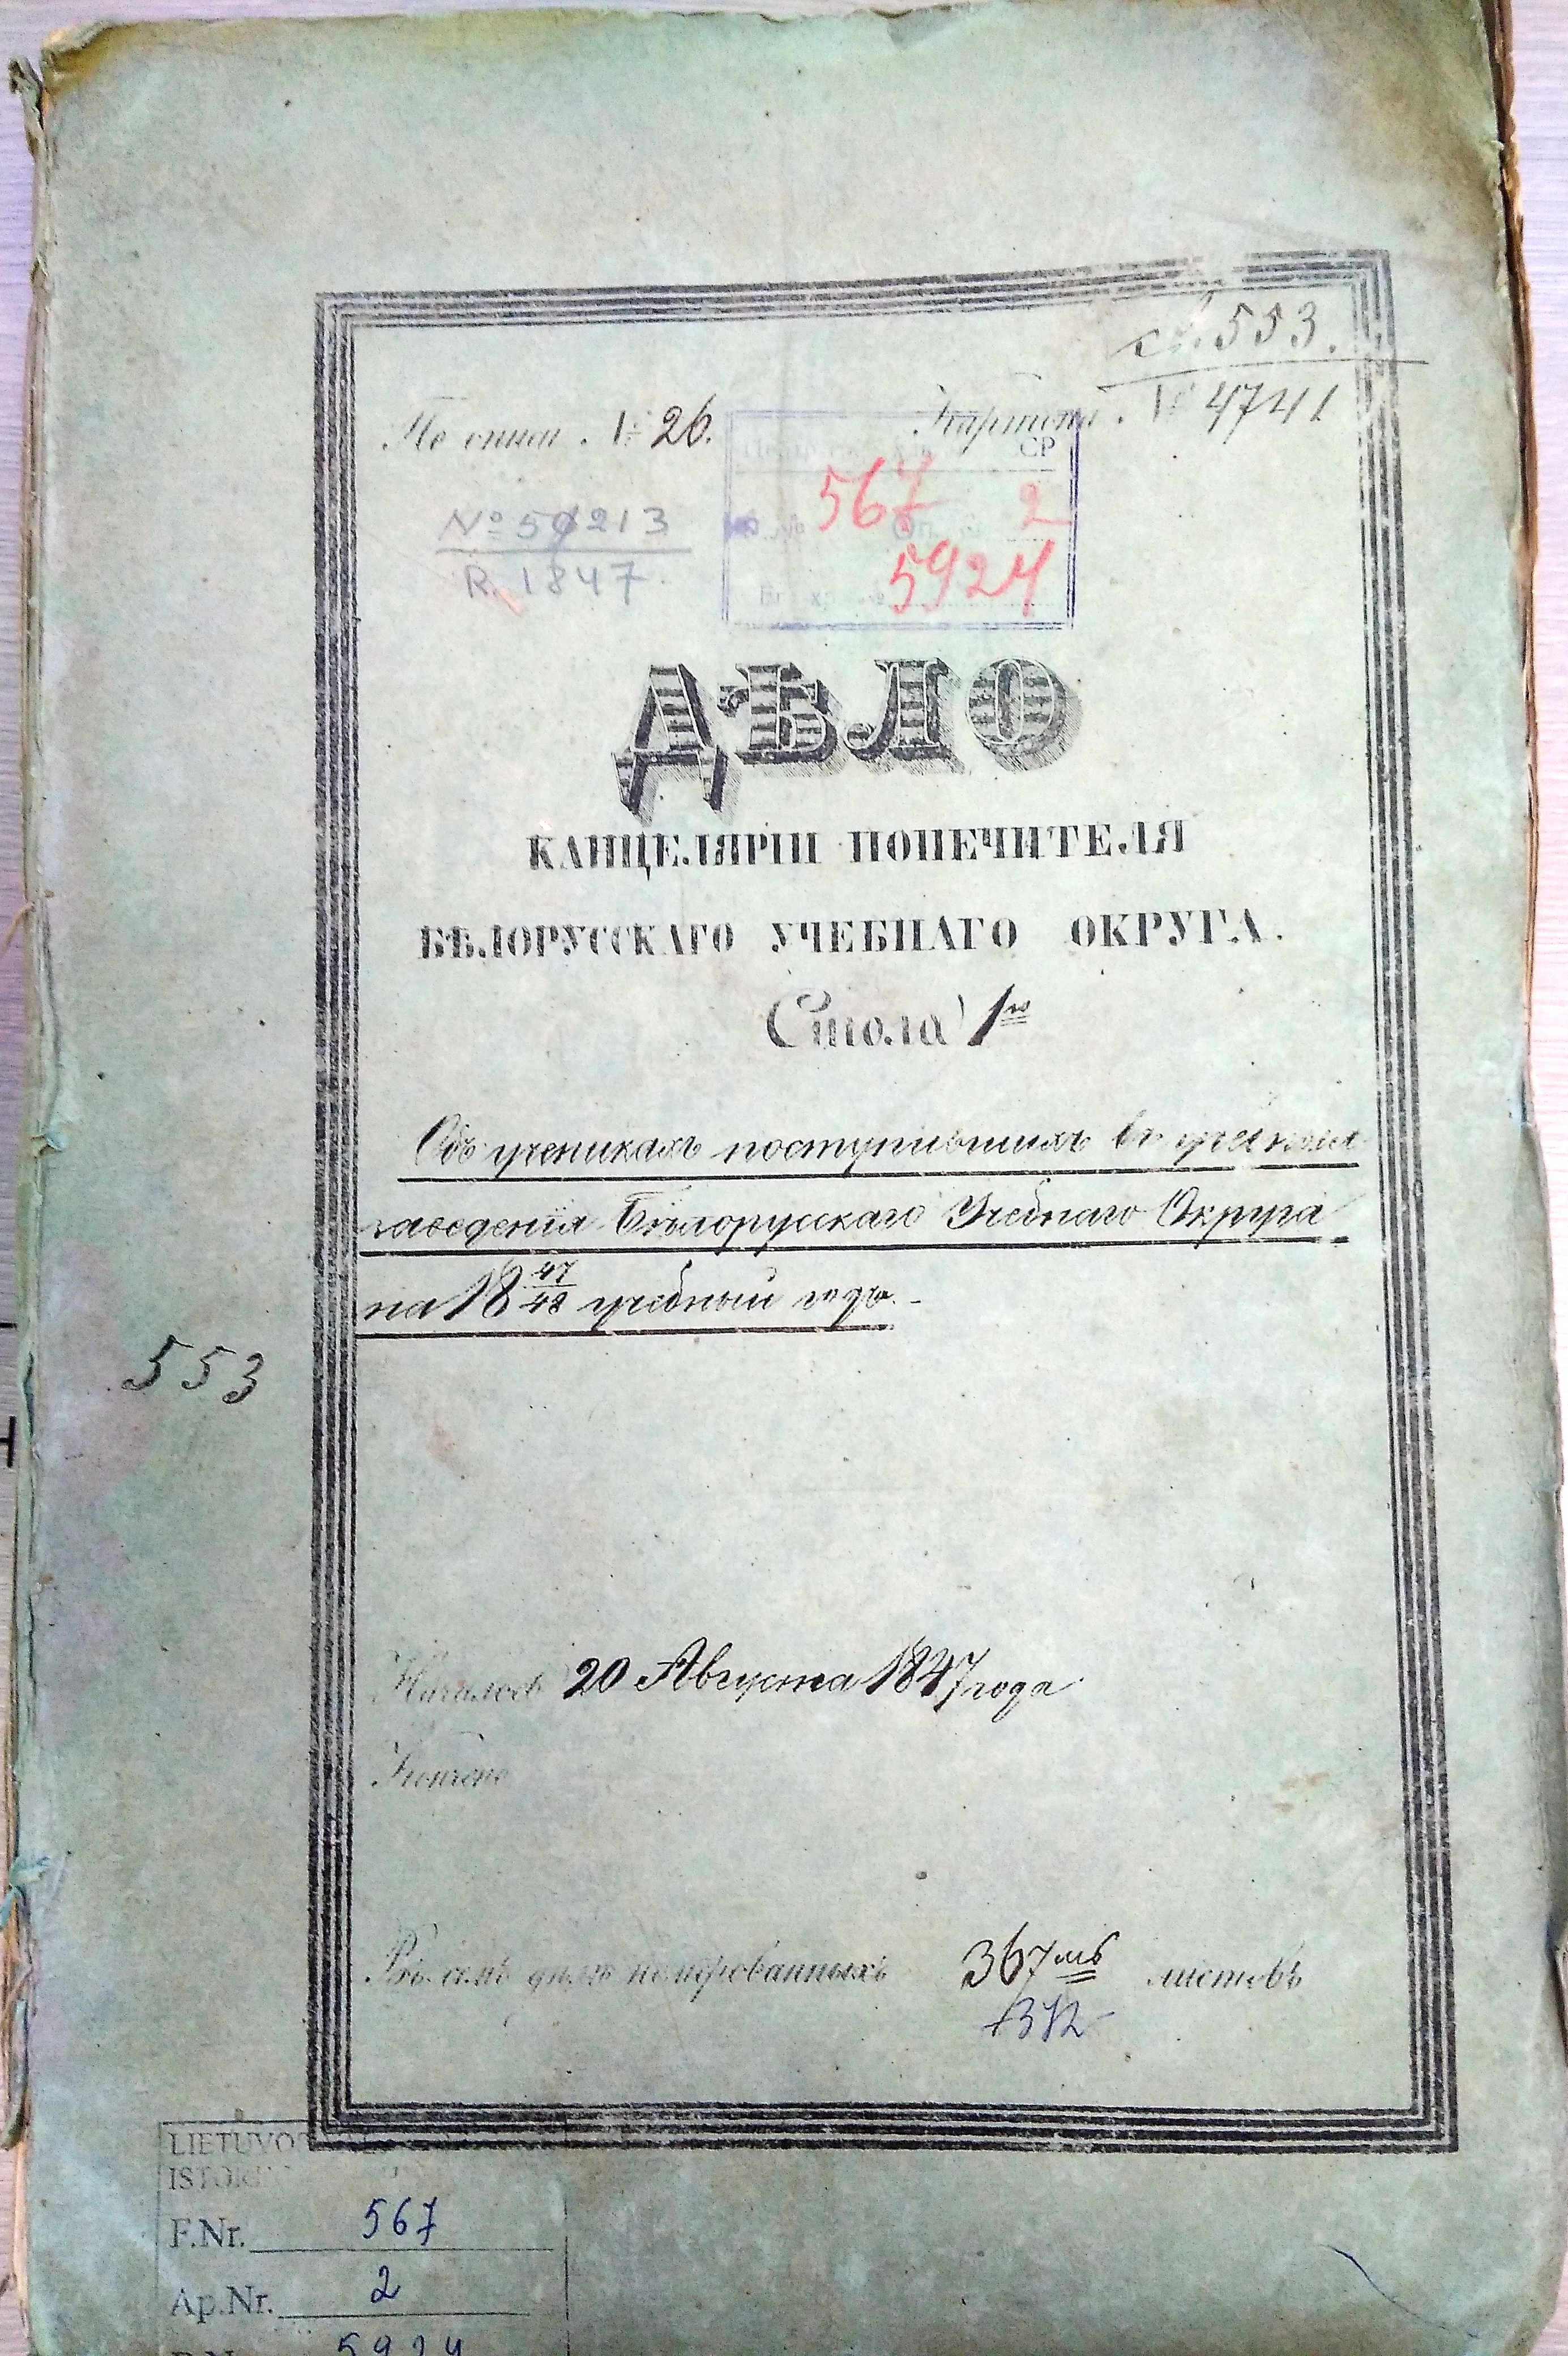 св. 553.
По описи № 26. Картона № 4741
СР
567 2
№ 50213
5924
R. 1847
ДѢЛО
КАНЦЕЛЯРІИ ПОПЕЧИТЕЛЯ
БѢЛОРУССКАГО УЧЕБНАГО ОКРУГА.
Стола 1го
Объ ученикахъ поступившихъ въ учебныя
заведенія Бѣлорусскаго Учебнаго Округа
на 18 47/48 учебный годъ.-
553
Началось 20 Августа 1847 года
Кончено
Въ семъ дѣлѣ номерованныхъ 367мь листовъ
372
LIETUVOS
F.Nr. 567
Ap.Nr. 2
5924